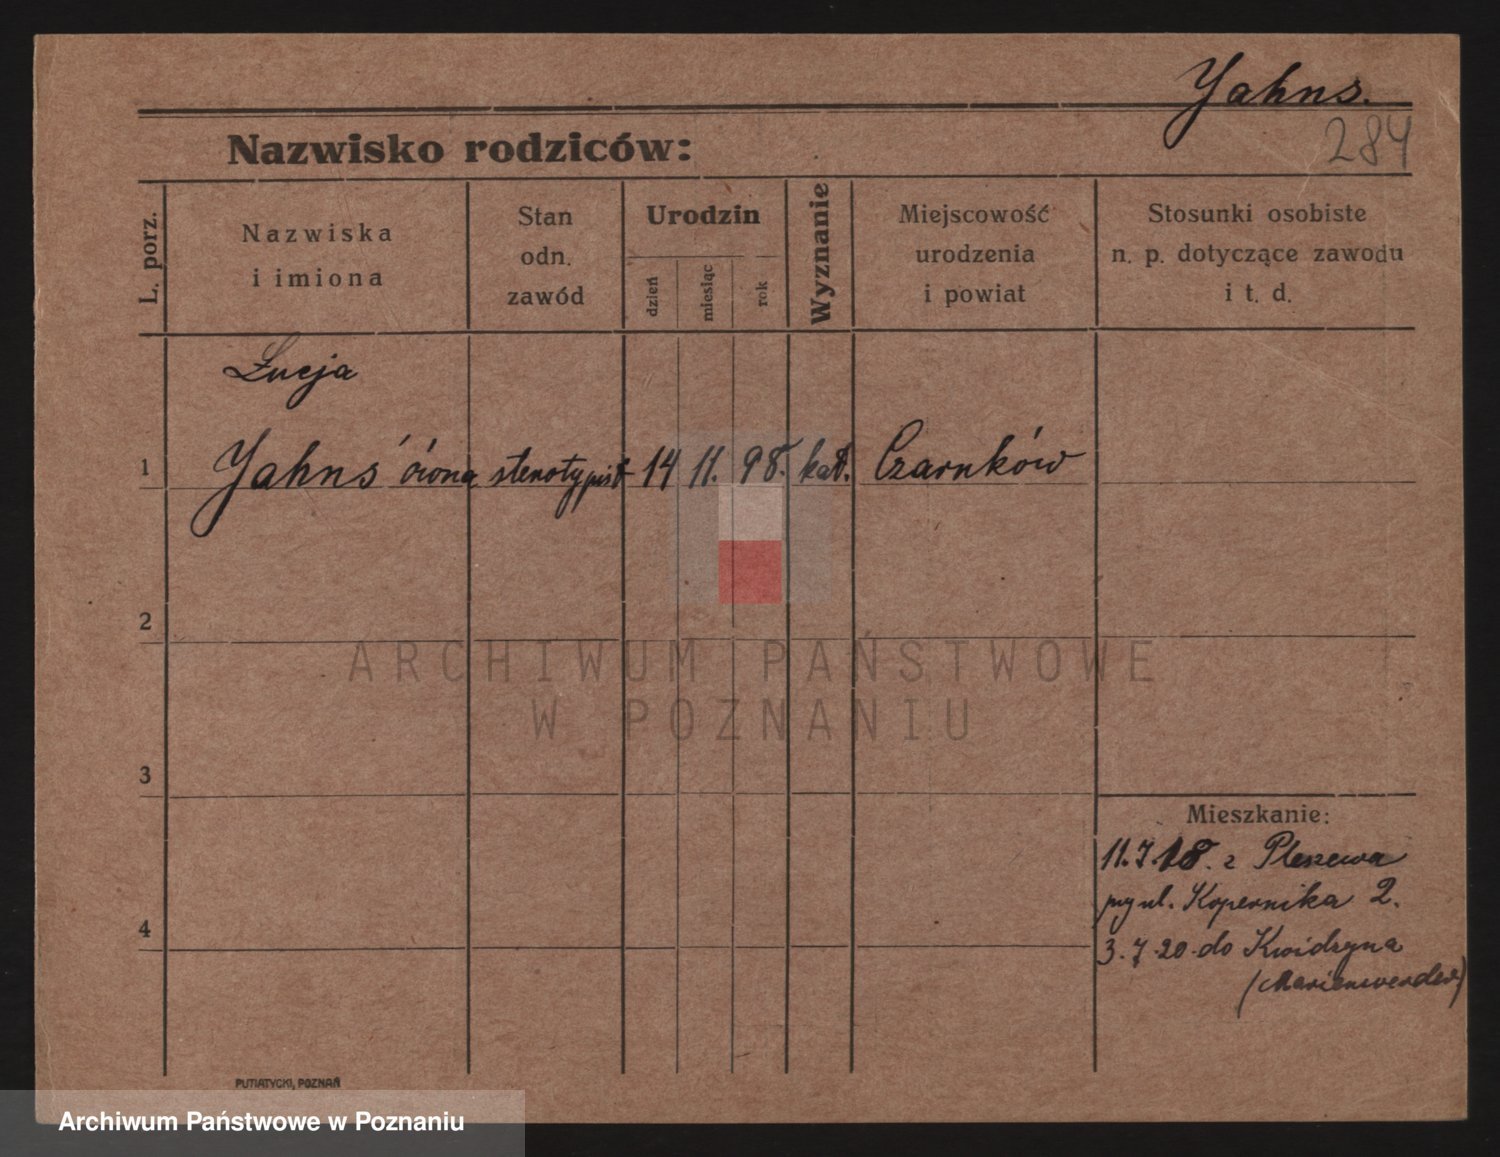 Yahns.
284
Nazwisko rodziców:
L. porz.
Nazwiska
i imiona
Stan
odn.
zawód
Urodzin
dzień
miesiąc
rok
Wyznanie
Miejscowość
urodzenia
i powiat
Stosunki osobiste
n. p. dotyczące zawodu
i t. d.
Łucja
1 Yahns'ówna stenotypist 14 11. 98. kat. Czarnków
2
ARCHIWUM PAŃSTWOWE
W POZNANIU
3
Mieszkanie:
11.7.18. z Pleszewa
przy ul. Kopernika 2.
4
3.7.20. do Kwidzyna
(Marienwerder)
PUTIATYCKI, POZNAŃ
Archiwum Państwowe w Poznaniu